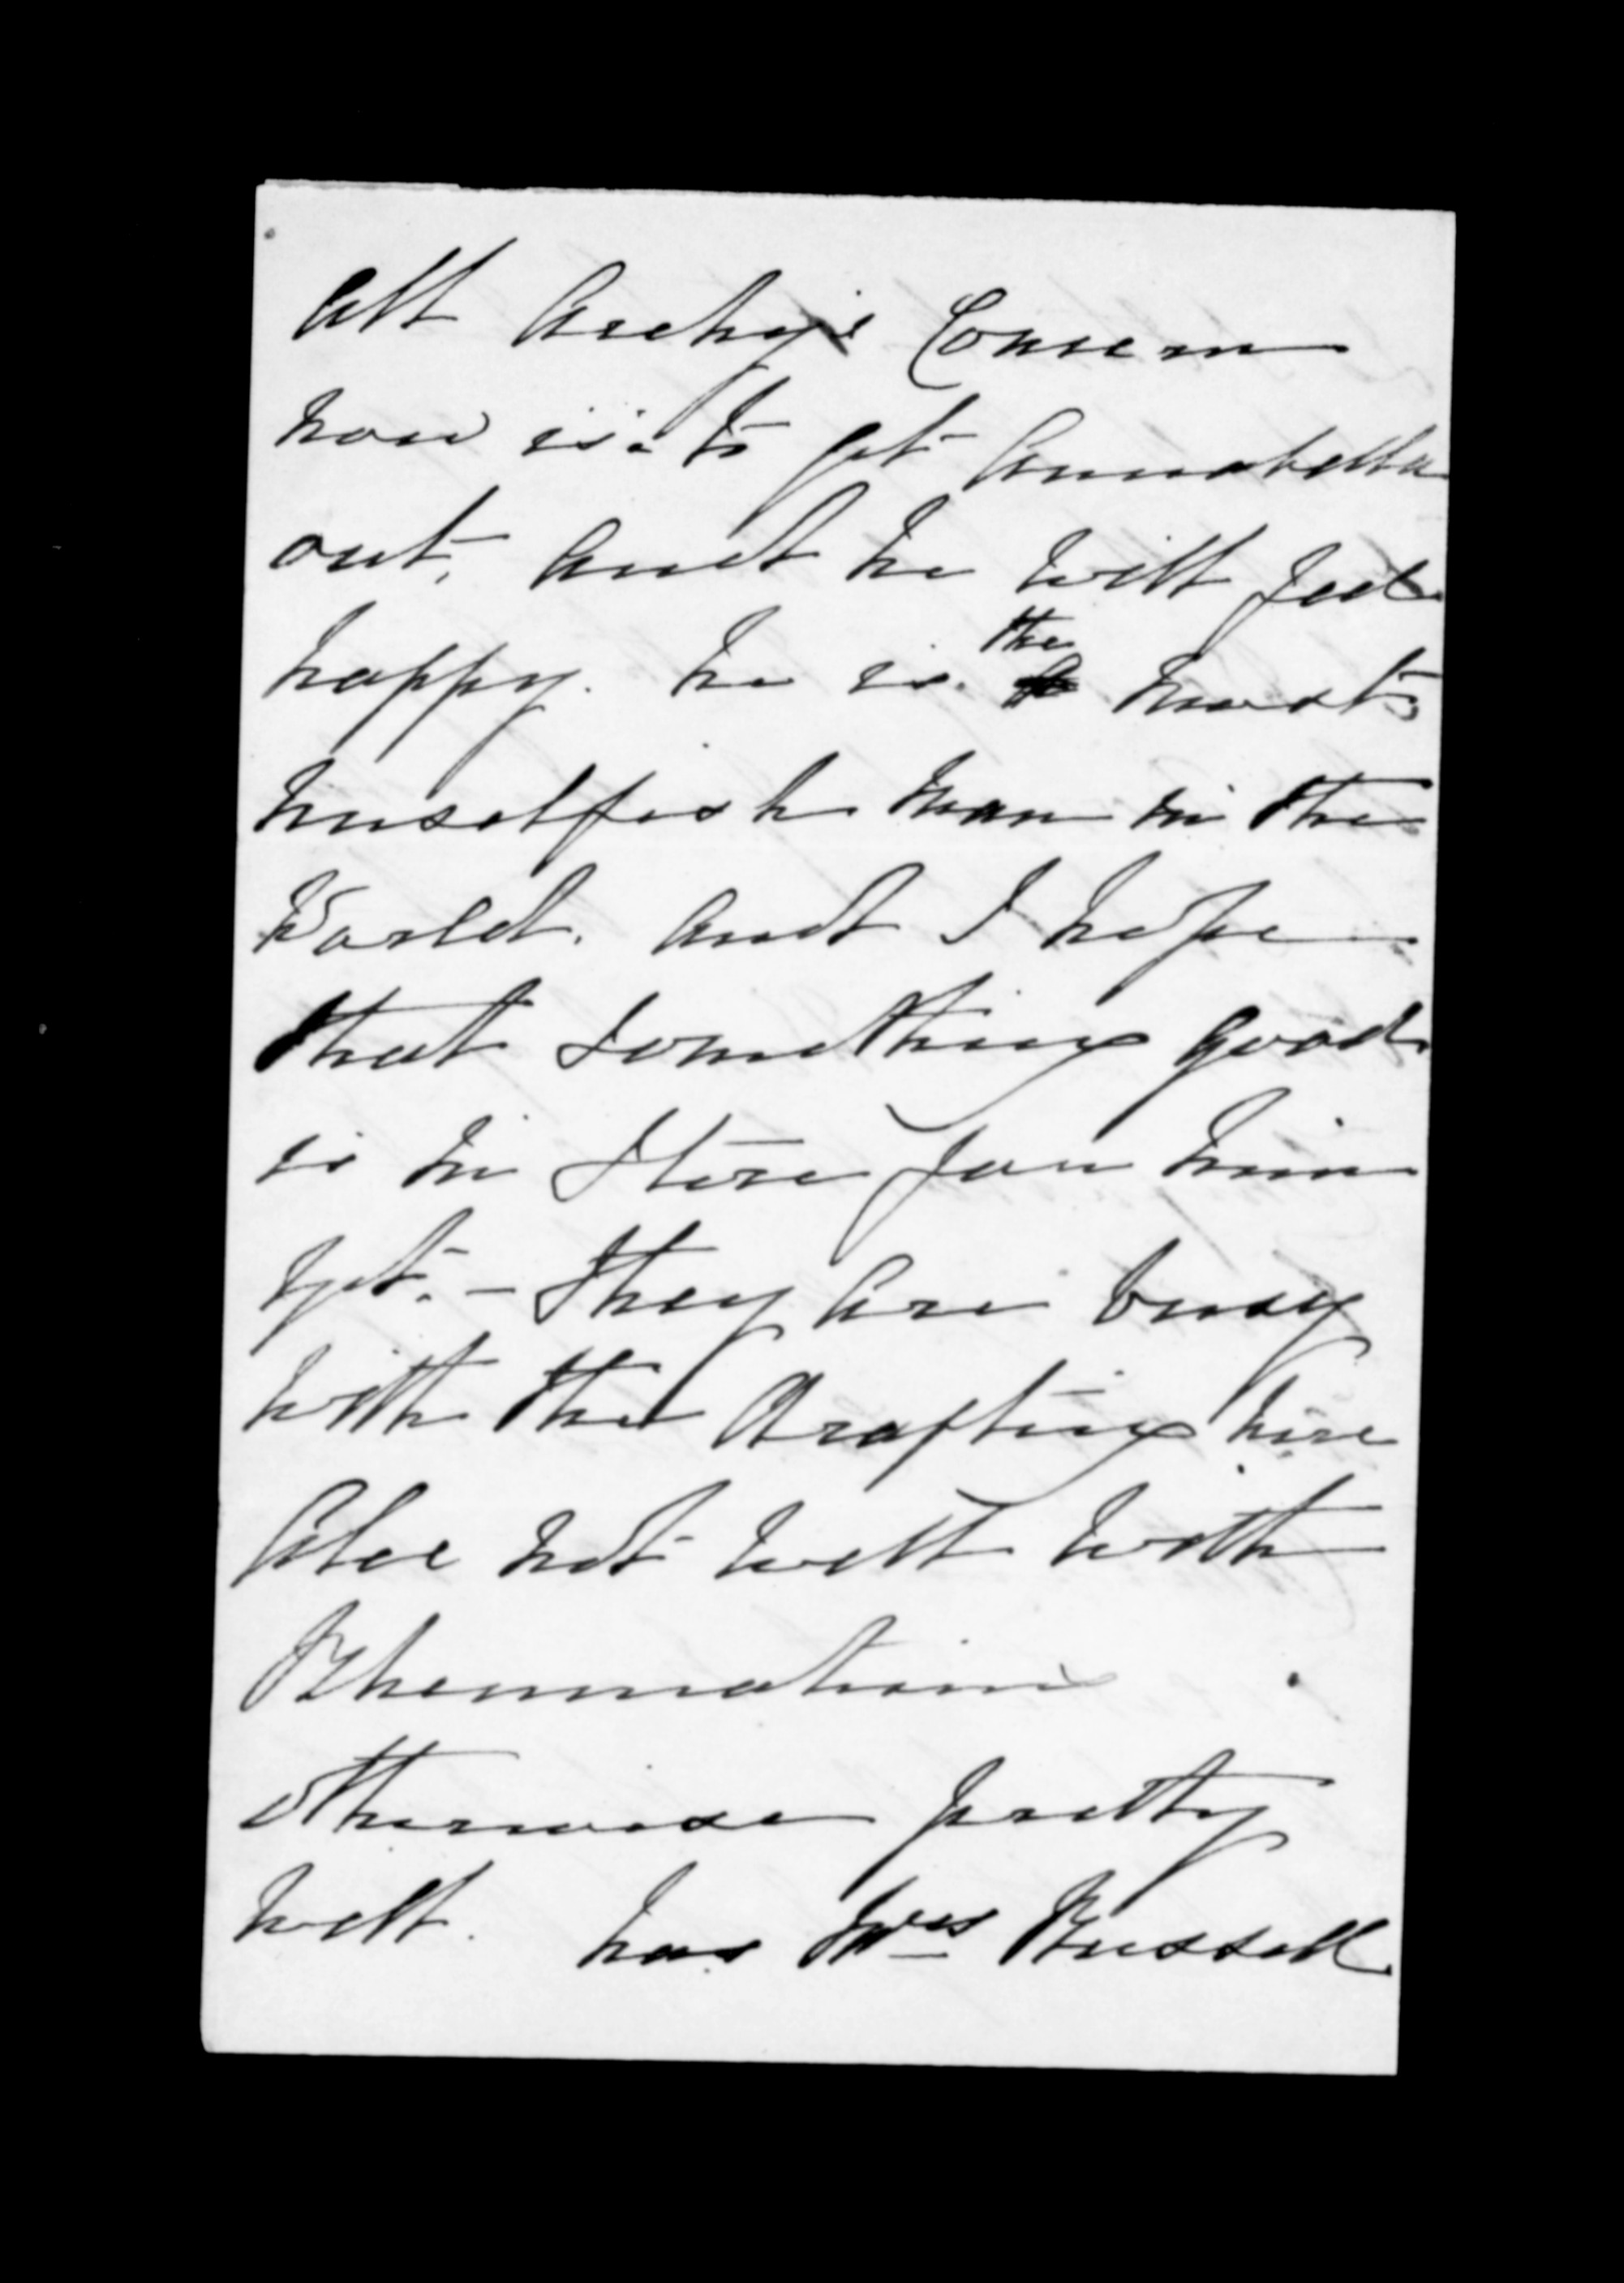 All Archy's Concern
now is to get Annabella
out, and he will feel
happy. he is the most
unselfish man in the
World. And I hope
that something good
is in Store for him
yet. - They are busy
with the drafting here
Alec not well with
Rheumatism
otherwise pretty
well. has Mrs Russell